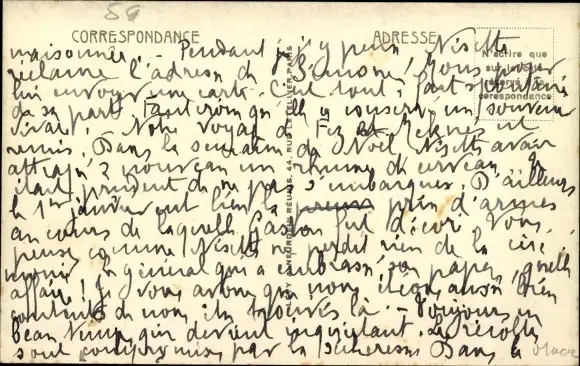 59
CORRESPONDANCE
ADRESSE
N'écrire que
sur le côté
réservé à la
correspondance
maisonnée – Pendant que j'y pense, Nisette
réclame l'adresse de Simone, pour
lui envoyer une carte. C'est tout à fait spontané
de sa part. Faut croire qu'elle y conserve un souvenir
vivace. Notre voyage de Fez et Meknès est
remis. Dans la semaine de Noël Nisette avait
attrapé à nouveau un rhume de cerveau. Il
était prudent de ne pas s'embarquer. D'ailleurs
le 1er janvier eut lieu la prise d'armes
au cours de laquelle Gaston fut décoré. Vous
pensez comme Nisette ne perdit rien de la céré
monie. Un général qui a embrassé son papa, quelle
affaire ! Je vous avoue que nous étions aussi bien
contents de nous être trouvés là. – Toujours un
beau temps qui devient inquiétant. La récolte
sont compromises par la sécheresse. Dans la
place
44, RUE LETELLIER, PARIS